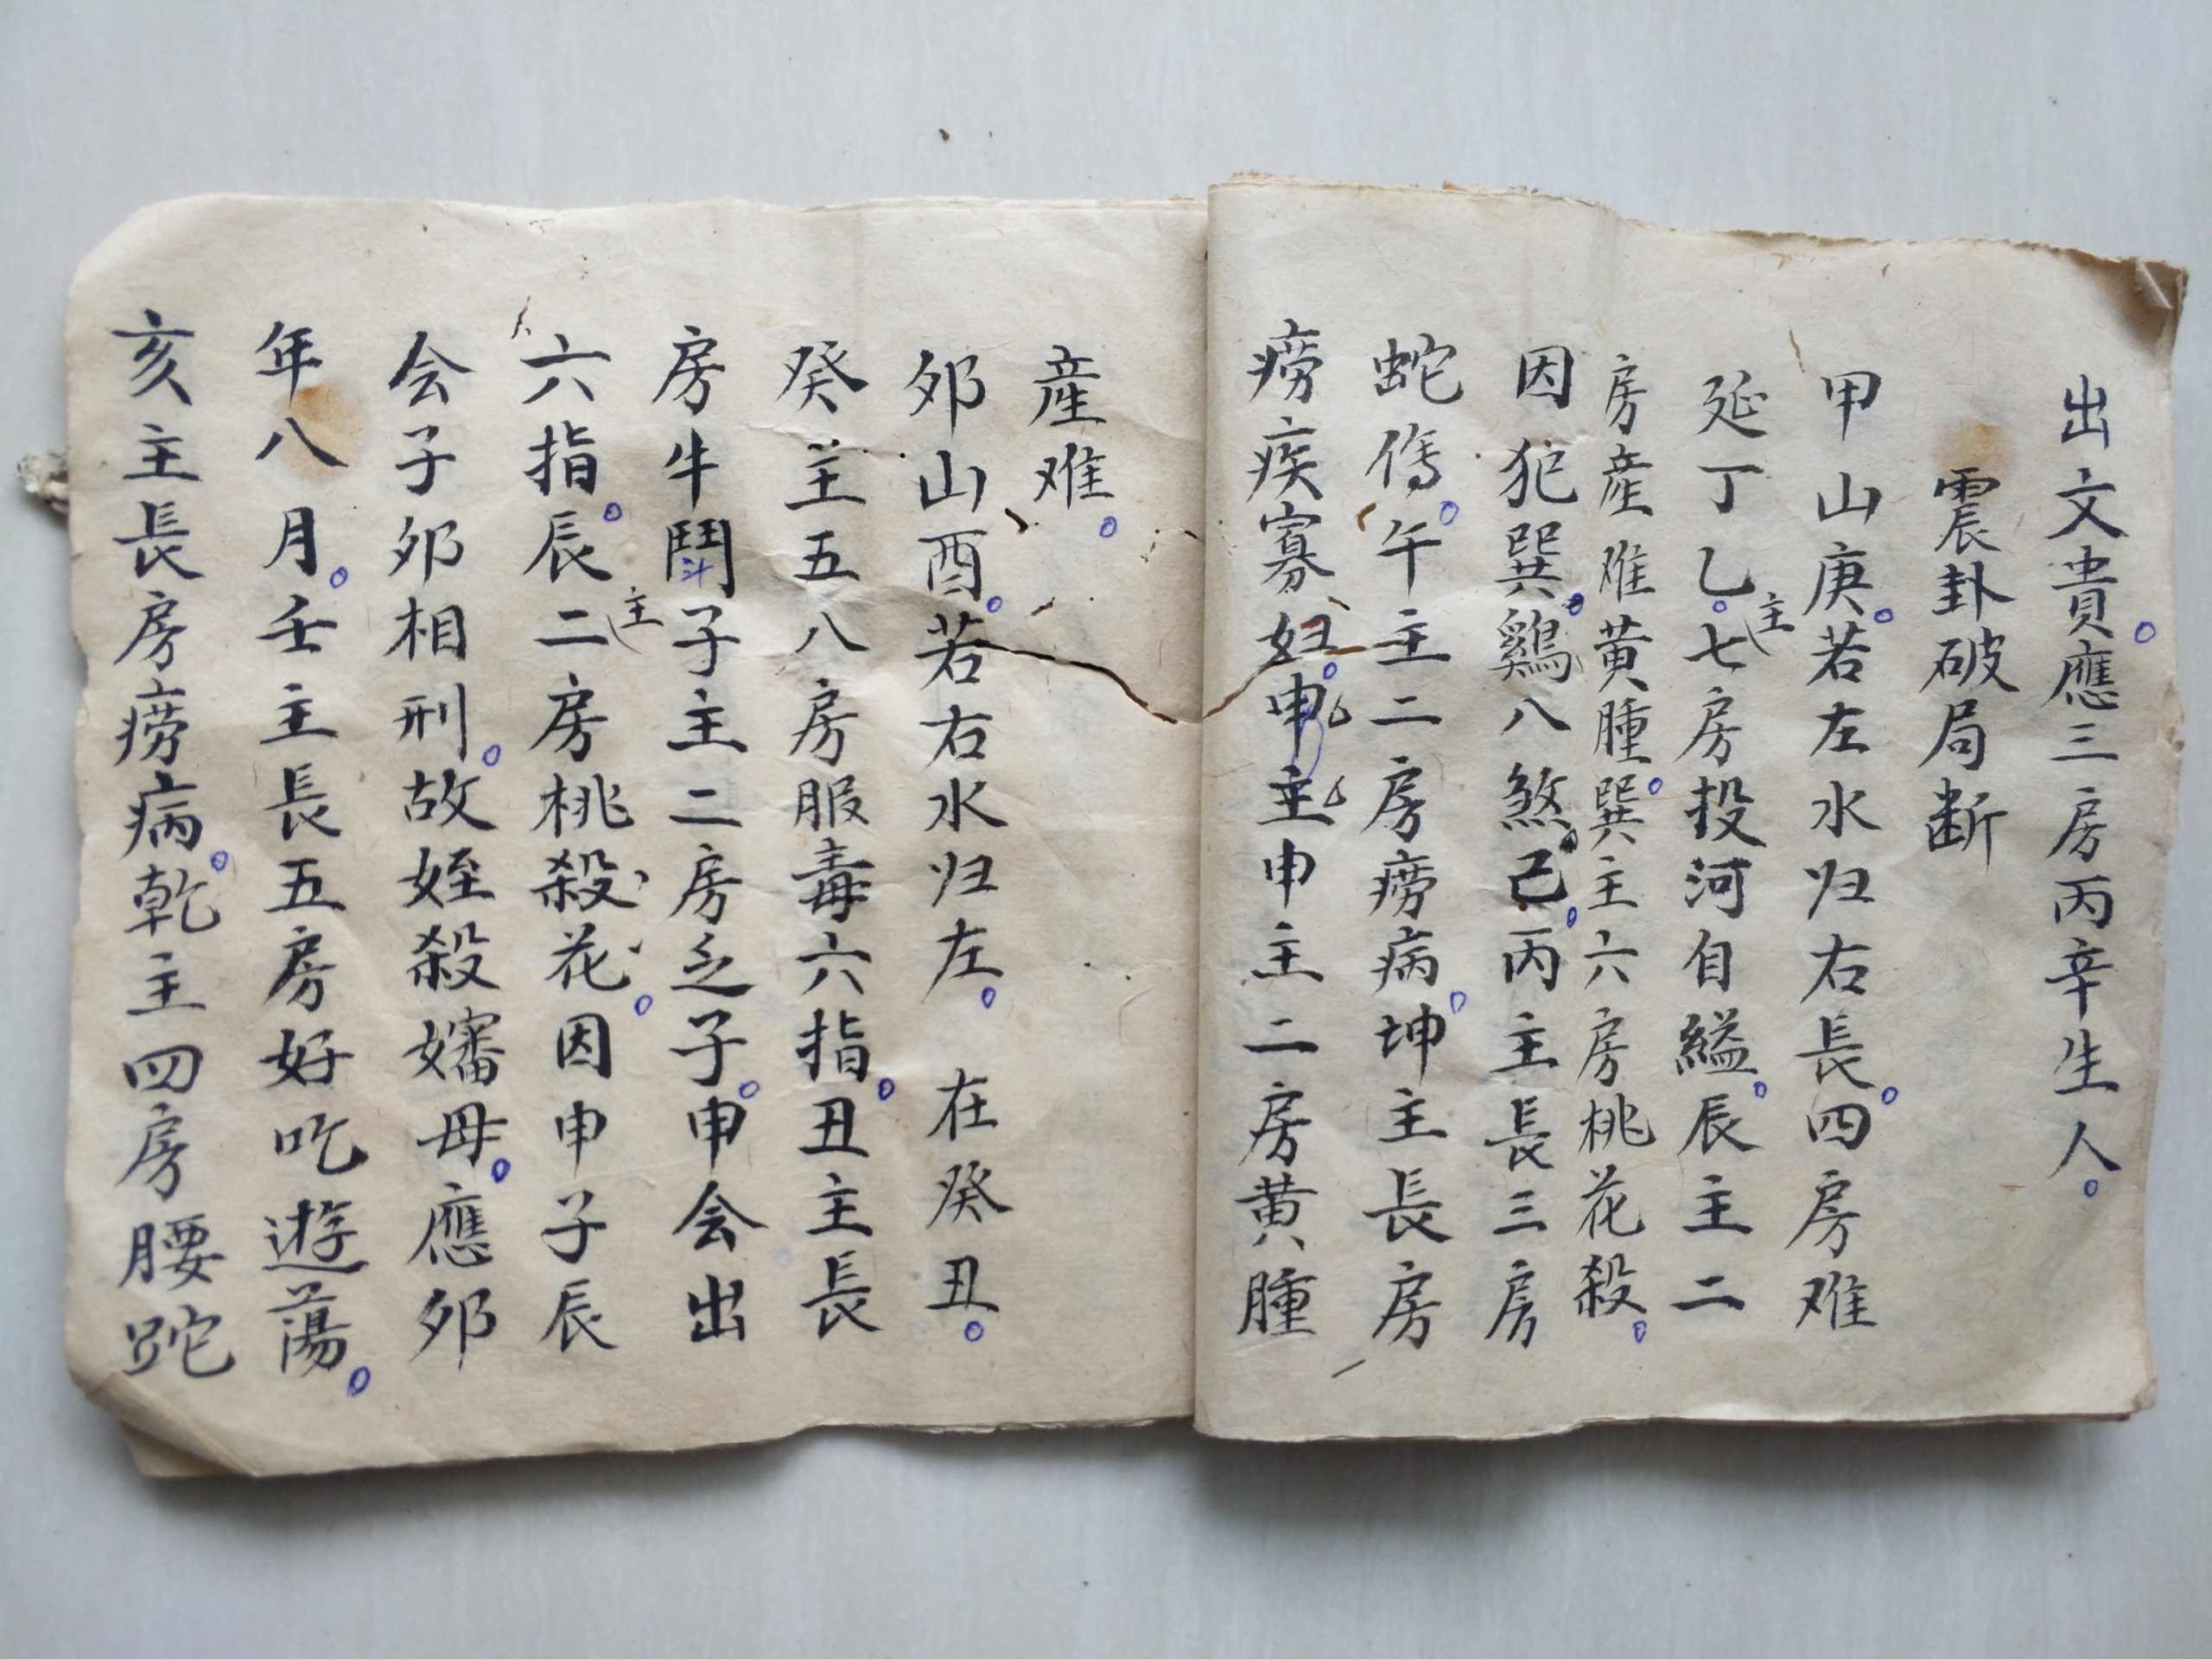 出文貴。應三房丙辛生人。
震卦破局断
甲山庚。若左水归右長。四房难
延丁乙。主七房投河自縊。辰主二
房産难黄腫。巽主六房桃花殺。
因犯巽。鷄八煞。己。丙主長三房
蛇傷。午主二房癆病。坤主長房
癆疾寡妇。申主申主二房黄腫
産难。
夘山酉。若右水归左。在癸丑。
癸主五八房服毒六指。丑主長
房牛鬬斗子主二房乏子。申会出
六指。辰主二房桃殺花。因申子辰
会子夘相刑。故姪殺嬸母。應夘
年八月。壬主長五房好吃遊蕩。
亥主長房癆病。乾主四房腰跎